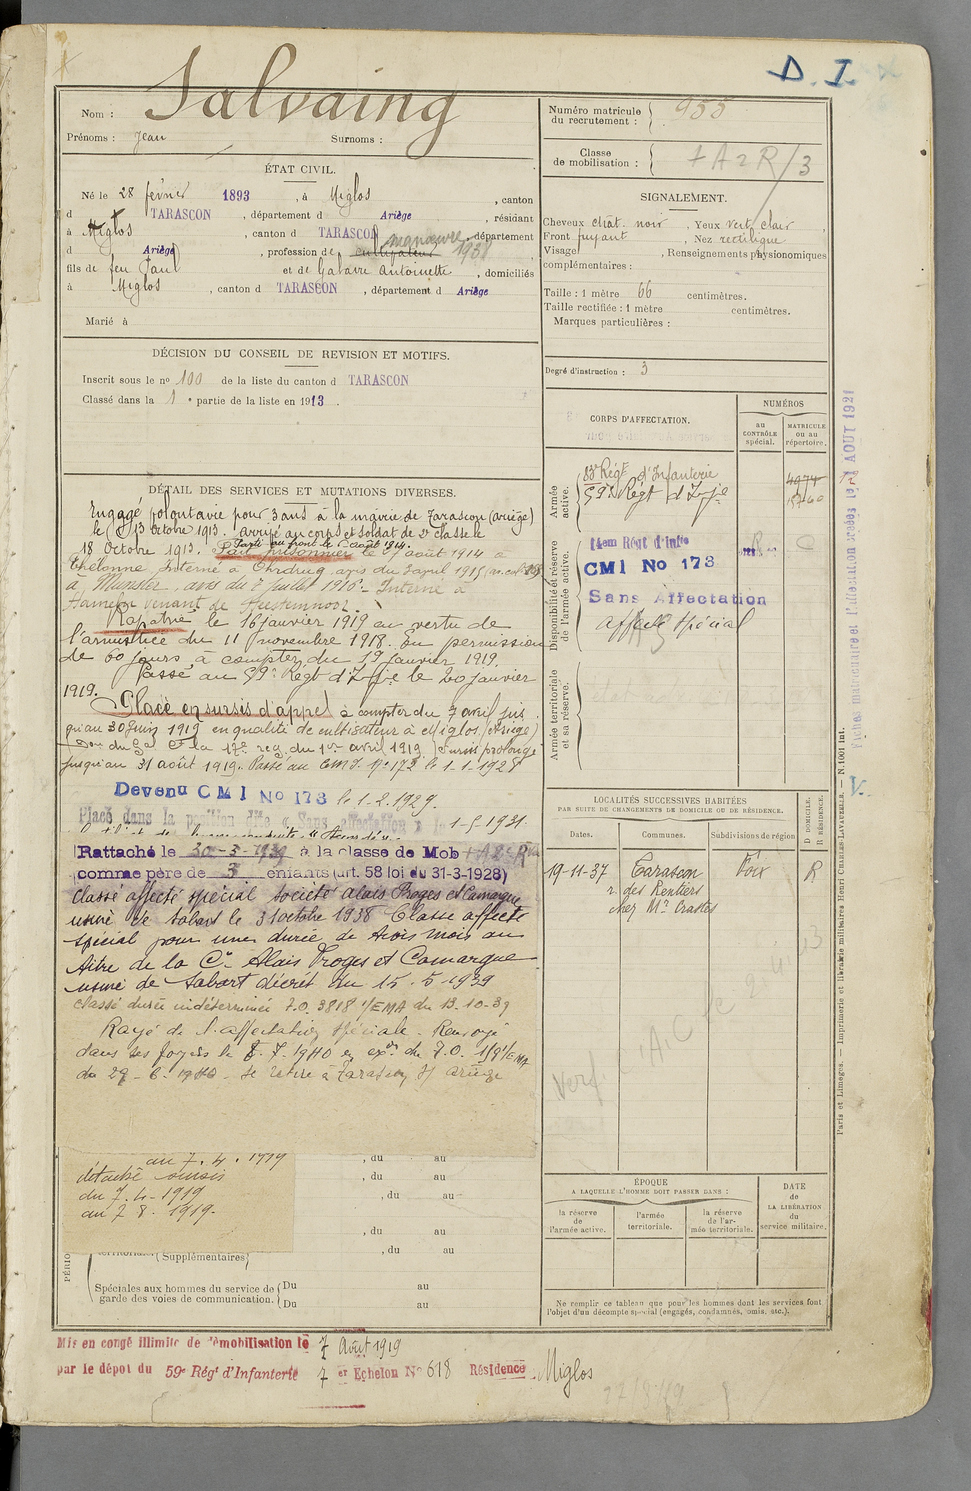 D. I.
Nom : Salvaing
Prénoms : Jean Surnoms :
ÉTAT CIVIL.
Né le 28 février 1893, à Miglos, canton
d TARASCON, département d Ariège, résidant
à Miglos, canton d TARASCON, département
d Ariège, profession de cultivateur manœuvre 1938
fils de feu Paul et de Gabarre Antoinette, domiciliés
à Miglos, canton d TARASCON, département d Ariège
Marié à
DÉCISION DU CONSEIL DE REVISION ET MOTIFS.
Inscrit sous le nº 100 de la liste du canton d TARASCON
Classé dans la 1e partie de la liste en 1913.
DÉTAIL DES SERVICES ET MUTATIONS DIVERSES.
Engagé volontaire pour 3 ans à la mairie de Tarascon (Ariège)
le 13 Octobre 1913. arrivé au corps et soldat de 2e classe le
18 Octobre 1913. Parti au front le août 1914.
Fait prisonnier le août 1914 à
Interné à Ohrdruf avis du 3 avril 1915
à Munster, avis du 7 juillet 1916. Interné à
Hameln venant de
Rapatrié le 16 janvier 1919 en vertu de
l'armistice du 11 novembre 1918. En permission
de 60 jours à compter du 19 janvier 1919.
Passé au 59e Régt d'Infie le 20 janvier
1919.
Placé en sursis d'appel à compter du 7 avril jus
qu'au 30 Juin 1919 en qualité de cultivateur à Miglos (Ariège)
Don du Gal Ct la 17e reg. du 1er avril 1919) Sursis prolongé
jusqu'au 31 août 1919. Passé au CMI Nº 173 le 1-1-1928
Devenu CMI No 173 le 1-2-1929.
Placé dans la position dite « Sans affectation » le 1-5-1931
Rattaché le 30-3-1939 à la classe de Mob
comme père de 3 enfants (art. 58 loi du 31-3-1928)
Classé affecté spécial société Alais Froges et Camargue
usine de Sabart le 31 octobre 1938 Classé affecté
spécial pour une durée de trois mois au
titre de la Cie Alais Froges et Camargue
usine de Sabart décret du 15.5.1939
Classé durée indéterminée T.O. 3818 1/EMA du 13-10-39
Rayé de l'affectation spéciale. Renvoyé
dans ses foyers le 8-7-1940 en exon du T.O. /EMA
du 29-6-1940. Se retire à Tarascon s/ Ariège
au 7.4.1919
détaché sursis
du 7.4-1919
au 7 8. 1919.
, du au
, du au
, du au
, du au
, du au
(Supplémentaires)
Spéciales aux hommes du service de Du au
garde des voies de communication. Du au
Mis en congé illimité de démobilisation le 7 Août 1919
par le dépot du 59e Régt d'Infanterie 7 er Echelon Nº 618 Résidence Miglos
Numéro matricule
du recrutement : 955
Classe
de mobilisation : + A 2 R/3
SIGNALEMENT.
Cheveux chât. noir, Yeux vert clair,
Front fuyant, Nez rectiligne
Visage, Renseignements physionomiques
complémentaires :
Taille : 1 mètre 66 centimètres.
Taille rectifiée : 1 mètre centimètres.
Marques particulières :
Degré d'instruction : 3
CORPS D'AFFECTATION.
NUMÉROS
au
CONTRÔLE
spécial.
MATRICULE
ou au
répertoire.
Armée
active.
83e Régt d'Infanterie 4974
59e Régt d'Infie
Disponibilité et réserve
de l'armée active.
14em Régt d'Infie
CMI No 173
Sans Affectation
affecté spécial
Armée territoriale
et sa réserve.
LOCALITÉS SUCCESSIVES HABITÉES
PAR SUITE DE CHANGEMENTS DE DOMICILE OU DE RÉSIDENCE.
Dates. Communes. Subdivisions de région
D DOMICILE.
R RÉSIDENCE.
19-11-37 Tarascon Foix R
r. des Rentiers
chez Me
ÉPOQUE
A LAQUELLE L'HOMME DOIT PASSER DANS :
DATE
de
LA LIBÉRATION
du
service militaire.
la réserve
de
l'armée active.
l'armée
territoriale.
la réserve
de l'ar-
mée territoriale.
Ne remplir ce tableau que pour les hommes dont les services font
l'objet d'un décompte spécial (engagés, condamnés, omis, etc.).
Fiches matriculaire et d'affectation créées le 1 AOUT 1921
V.
Paris et Limoges. — Imprimerie et librairie militaires Henri CHARLES-LAVAUZELLE. — N. 1001 int.